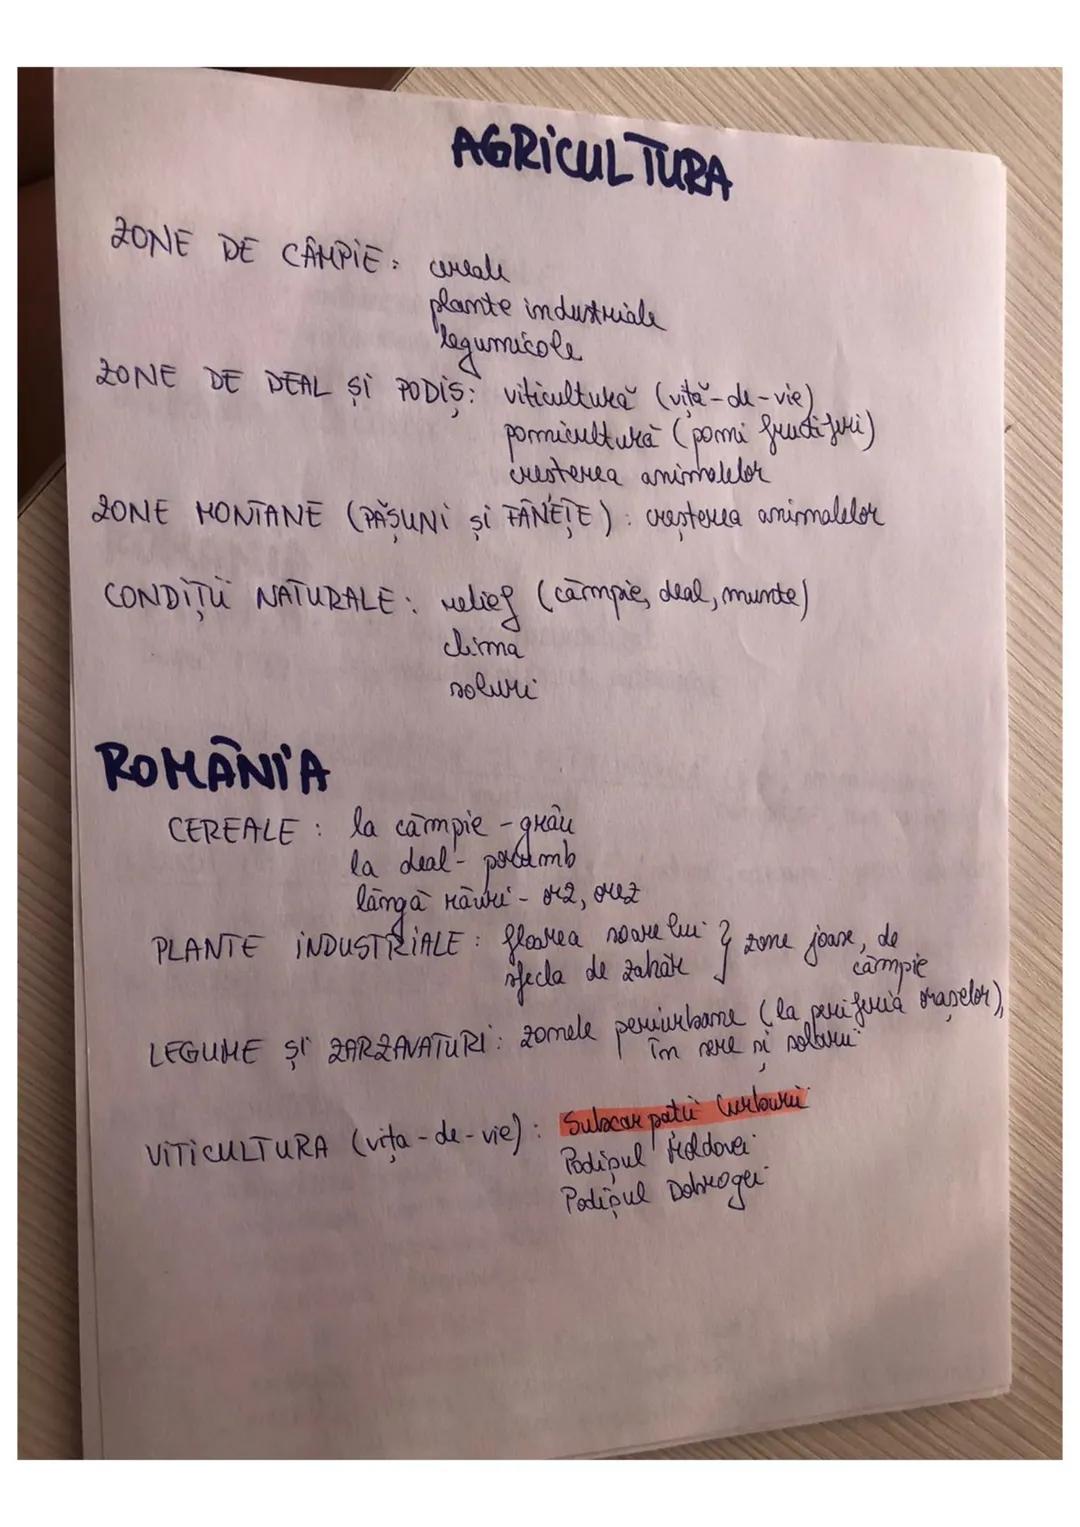 AGRICULTURA
ZONE DE CÂMPIE: cereale
plante industriale
legumicole
ZONE DE DEAL ȘI PODIȘ: viticultură (viță-de-vie)
pomicultură (pomi fructiferi)
creșterea animalelor
ZONE MONTANE (PĂȘUNI ȘI FÂNEȚE): creșterea animalelor
CONDIȚII NATURALE: relief (câmpie, deal, munte)
clima
soluri
ROMÂNIA
CEREALE: la câmpie - grâu
la deal - porumb
lângă râuri - orz, orez
PLANTE INDUSTRIALE: floarea soarelui } zone joase, de
sfecla de zahăr câmpie
LEGUME ȘI ZARZAVATURI: zonele periurbane (la periferia orașelor),
în sere și solarii
VITICULTURA (vița-de-vie): Subcarpații Curburii
Podișul Moldovei
Podișul Dobrogei